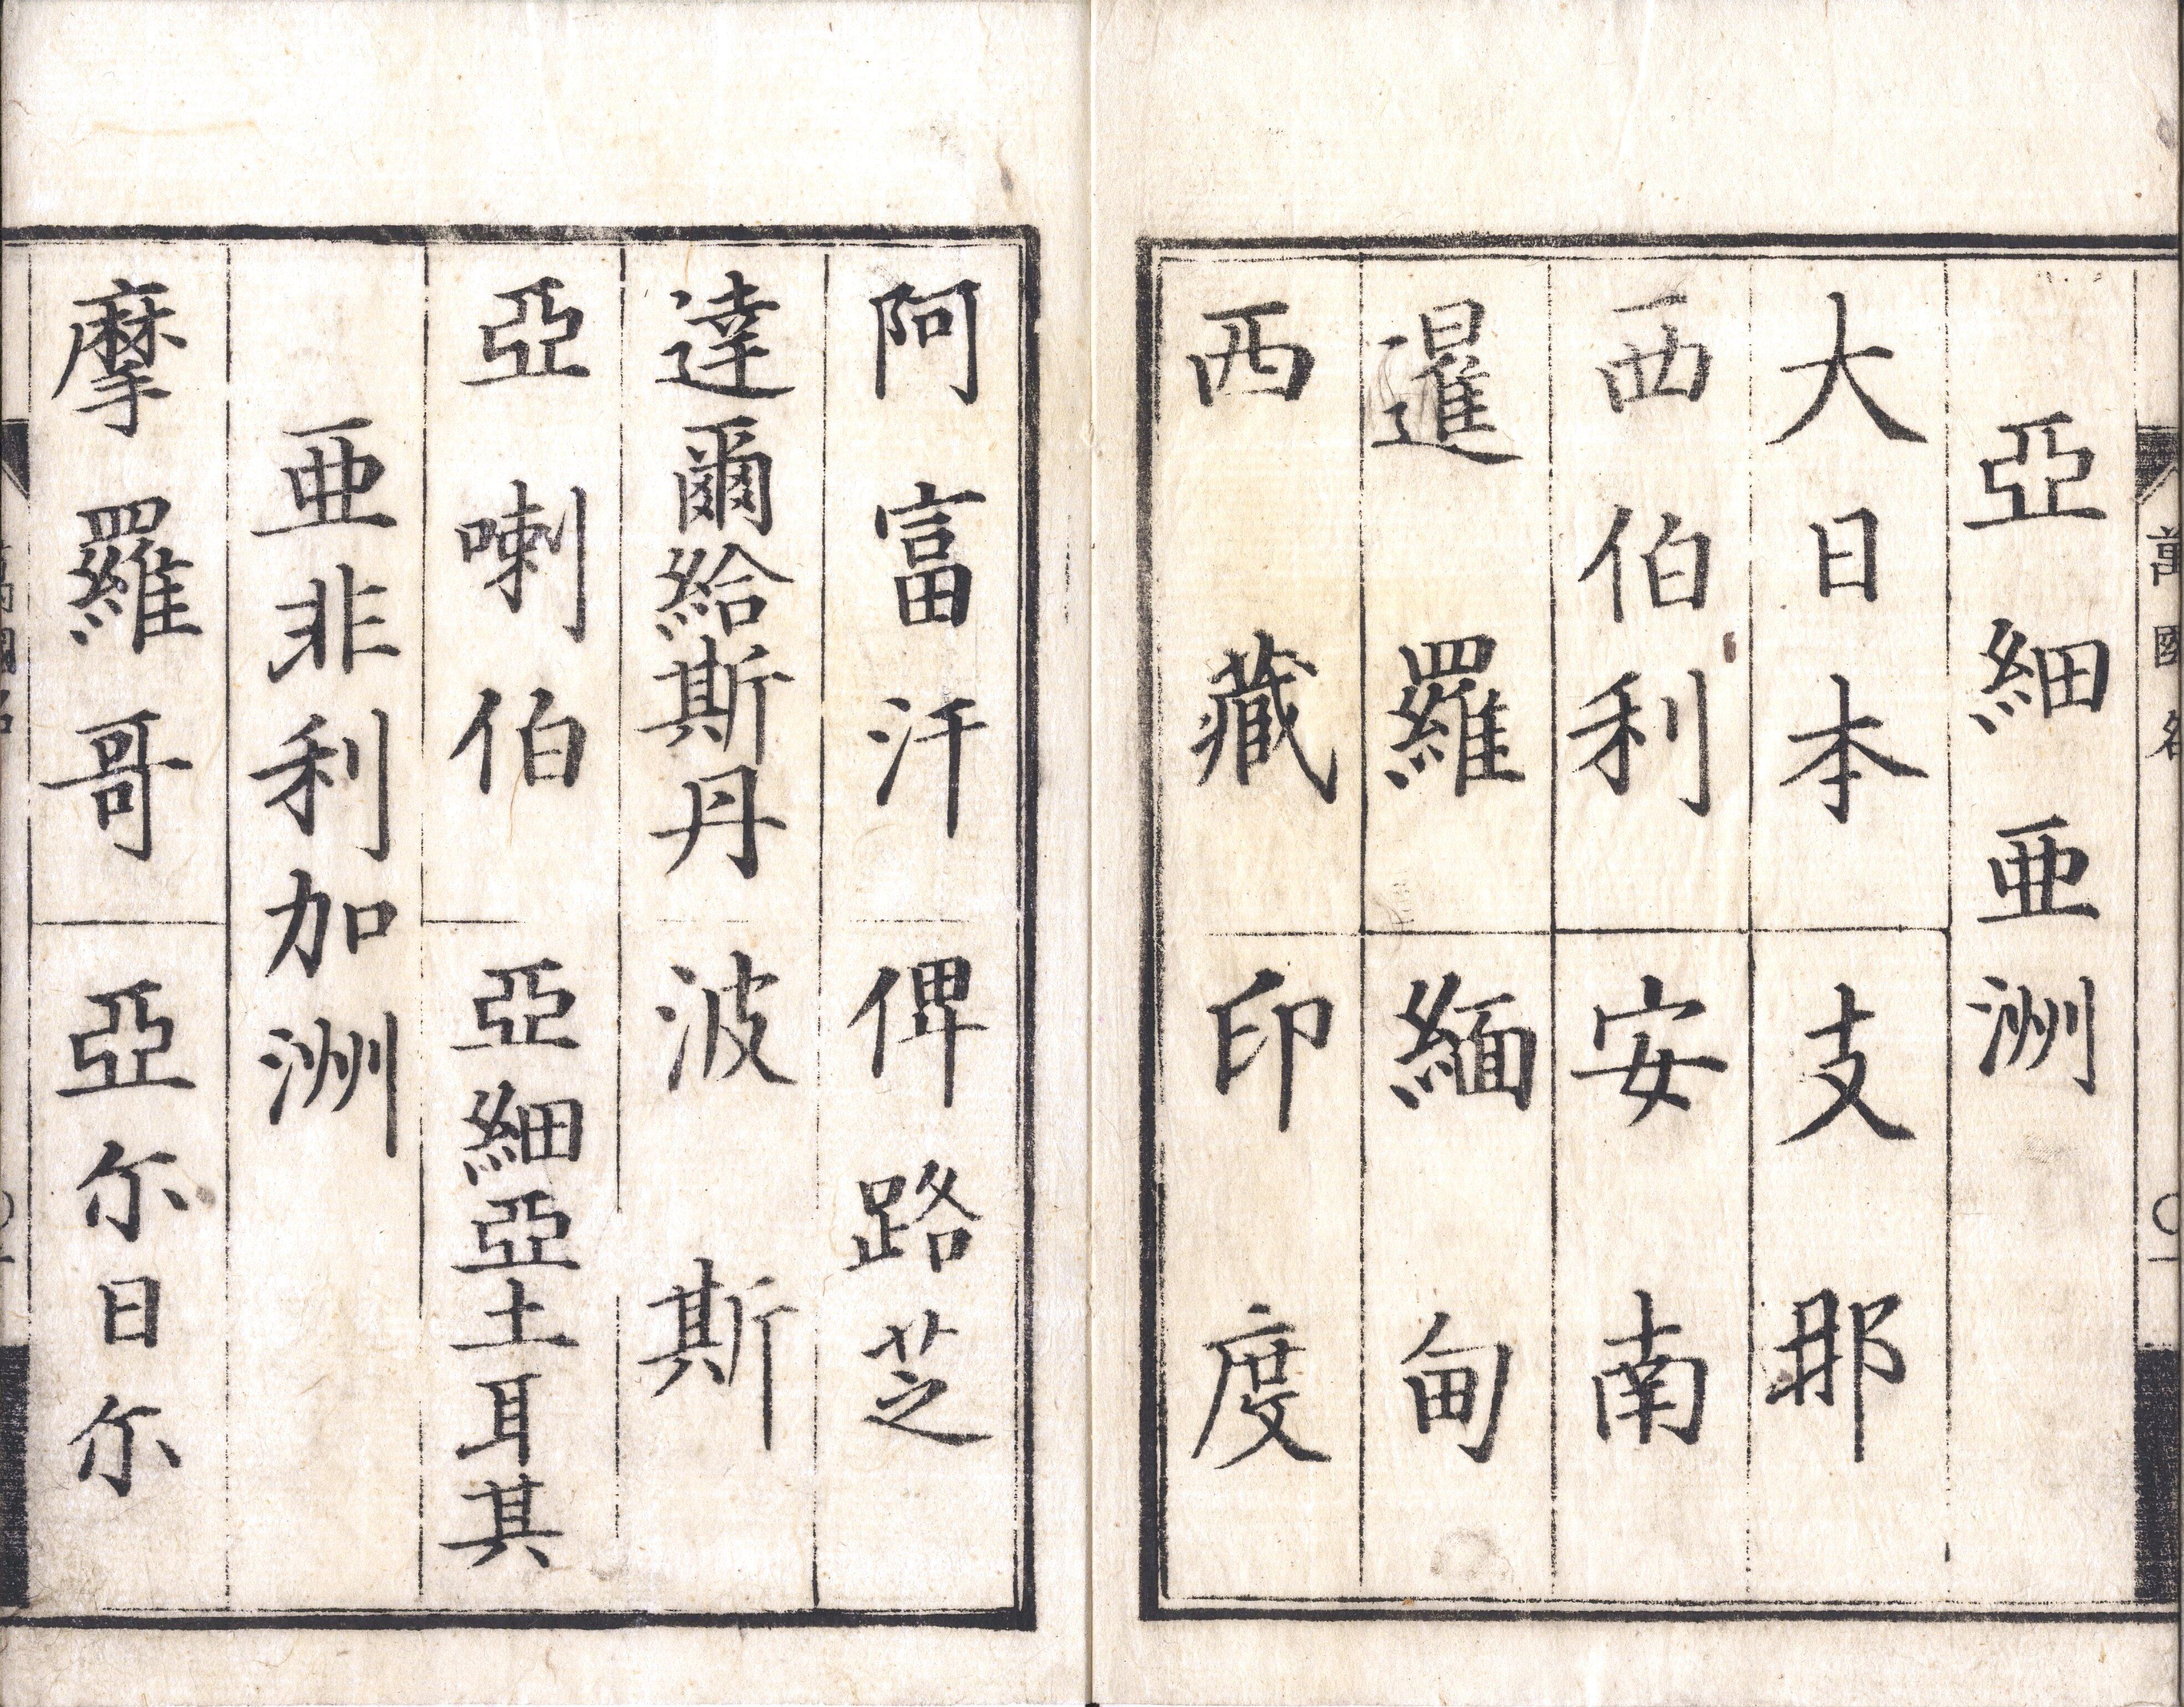 亞細亜洲
大日本　支那
西伯利　安南
暹羅　緬甸
西藏　印度
阿富汗　俾路芝
達爾給斯丹　波斯
亞喇伯　亞細亞土耳其
亜非利加洲
摩羅哥　亞尓日尓